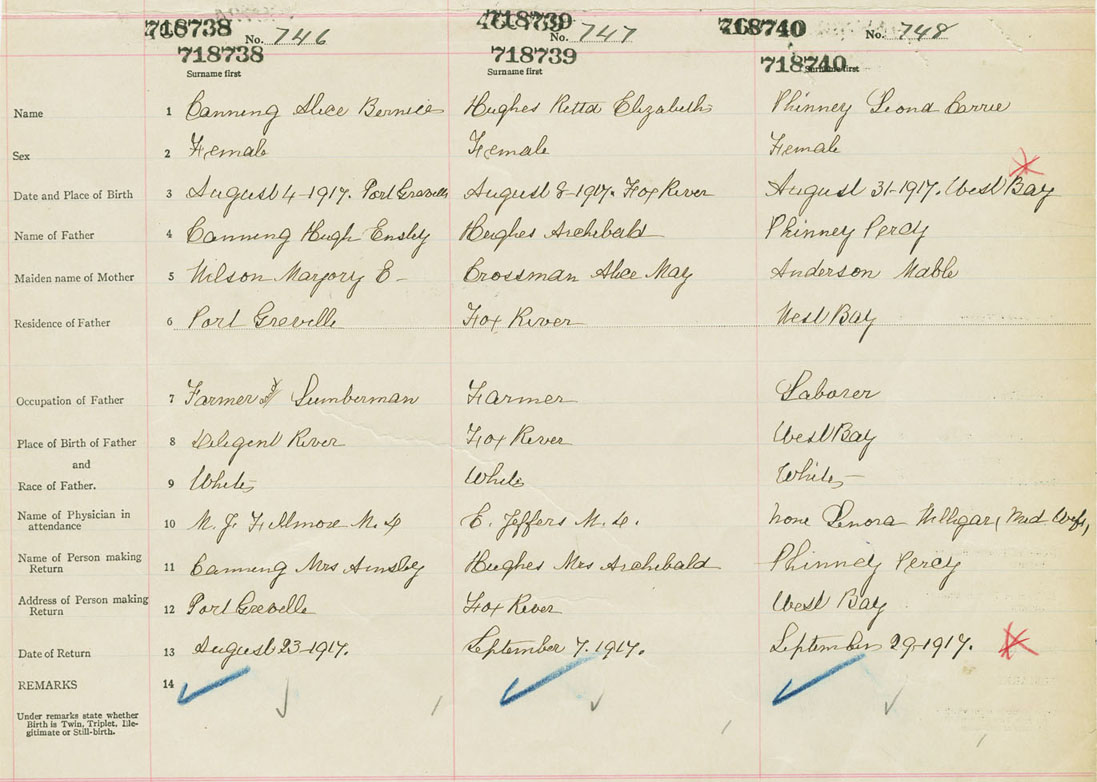 718738 718739 718740
No. 746 No. 747 No. 748
718738 718739 718740
Surname first Surname first Surname first
Name 1 Canning Alice Bernice Hughes Retta Elizabeth Phinney Leona Carrie
Sex 2 Female Female Female
Date and Place of Birth 3 August 4-1917. Port Greville August 8-1917. Fox River August 31-1917. West Bay
Name of Father 4 Canning Hugh Ensley Hughes Archibald Phinney Percy
Maiden name of Mother 5 Wilson Marjory E- Crossman Alice May Anderson Mable
Residence of Father 6 Port Greville Fox River West Bay
Occupation of Father 7 Farmer & Lumberman Farmer Laborer
Place of Birth of Father 8 Diligent River Fox River West Bay
and
Race of Father. 9 White White White
Name of Physician in
attendance 10 M. J. Fillmore M.D. E. Jeffers M.D. None Lenora Milligar, Mid Wife,
Name of Person making
Return 11 Canning Mrs Ainsley Hughes Mrs Archibald Phinney Percy
Address of Person making
Return 12 Port Greville Fox River West Bay
Date of Return 13 August 23-1917. September 7. 1917. September 29-1917.
REMARKS 14
Under remarks state whether
Birth is Twin, Triplet, Ille-
gitimate or Still-birth.